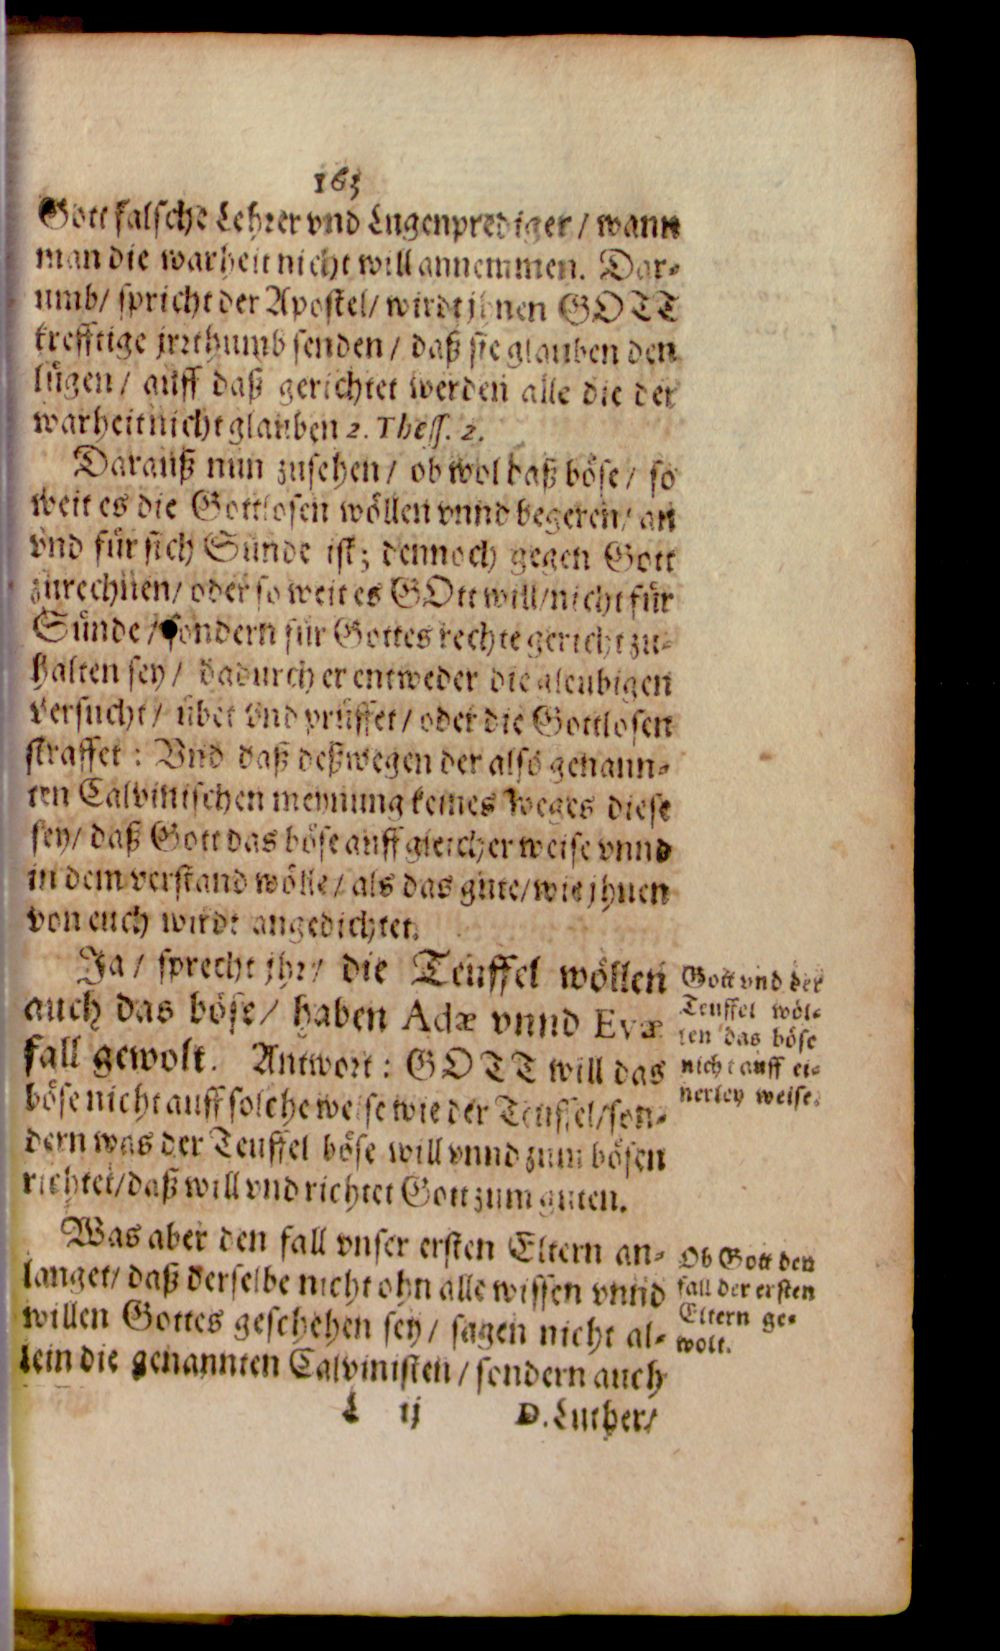 163
Gott falsche Lehrer vnd Lugenprediger / wann
man die warheit nicht will annemmen. Dar-
umb / spricht der Apostel / wirdt jhnen GOTT
krefftige jrrthumb senden / daß sie glauben den
lügen / auff daß gerichtet werden alle die der
warheit nicht glauben 2. Thess. 2.
Darauß nun zusehen / ob wol daß böse / so
weit es die Gottlosen wöllen vnnd begeren / an
vnd für sich Sünde ist; dennoch gegen Gott
zurechnen / oder so weit es GOtt will / nicht für
Sünde / sondern für Gottes rechte gericht zu-
halten sey / dadurch er entweder die gleubigen
versucht / übet vnd prüffet / oder die Gottlosen
straffet : Vnd daß deßwegen der also genann-
ten Calvinischen meynung keines weges diese
sey / daß Gott das böse auff gleicher weise vnnd
in dem verstand wölle / als das gute / wie jhnen
von euch wirdt angedichtet.
Ja / sprecht jhr / die Teuffel wöllen
auch das böse / haben Adæ vnnd Evæ
fall gewolt. Antwort : GOTT will das
böse nicht auff solche weise wie der Teuffel / son-
dern was der Teuffel böse will vnnd zum bösen
richtet / daß will vnd richtet Gott zum guten.
Gott vnd der
Teuffel wöl-
len das böse
nicht auff ei-
nerley weise.
Was aber den fall vnser ersten Eltern an-
langet / daß derselbe nicht ohn alle wissen vnnd
willen Gottes geschehen sey / sagen nicht al-
lein die genannten Calvinisten / sondern auch
Ob Gott den
fall der ersten
Eltern ge-
wolt.
L ij D. Luther /